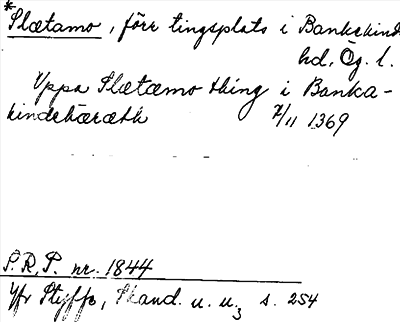 *Slætamo, förr tingsplats i Bankekind
hd, Ög. l.
Uppa Slætæmo thing i Banka-
kindehæræth 7/11 1369
S.R.P. nr. 1844
Jfr Styffe, Skand. u. u.3 s. 254